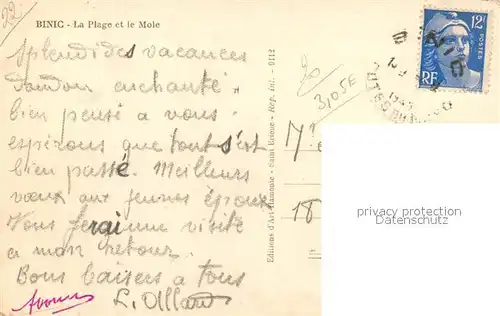 22
BINIC - La Plage et le Mole
Splendides vacances
Dandon enchanté
bien pensé a vous.
espirons que tout s'est
bien passé. Meilleurs
vœux aux jeunes époux
Vous ferai une visite
a mon retour.
Bons baisers a tous
L. Allard
Editions d'Art Jaunasse - Saint Brieuc - Rep. Int. - 9112
20
3,05E
M
18
12F
RF
BINIC
1949
COTES DU NORD
privacy protection
Datenschutz